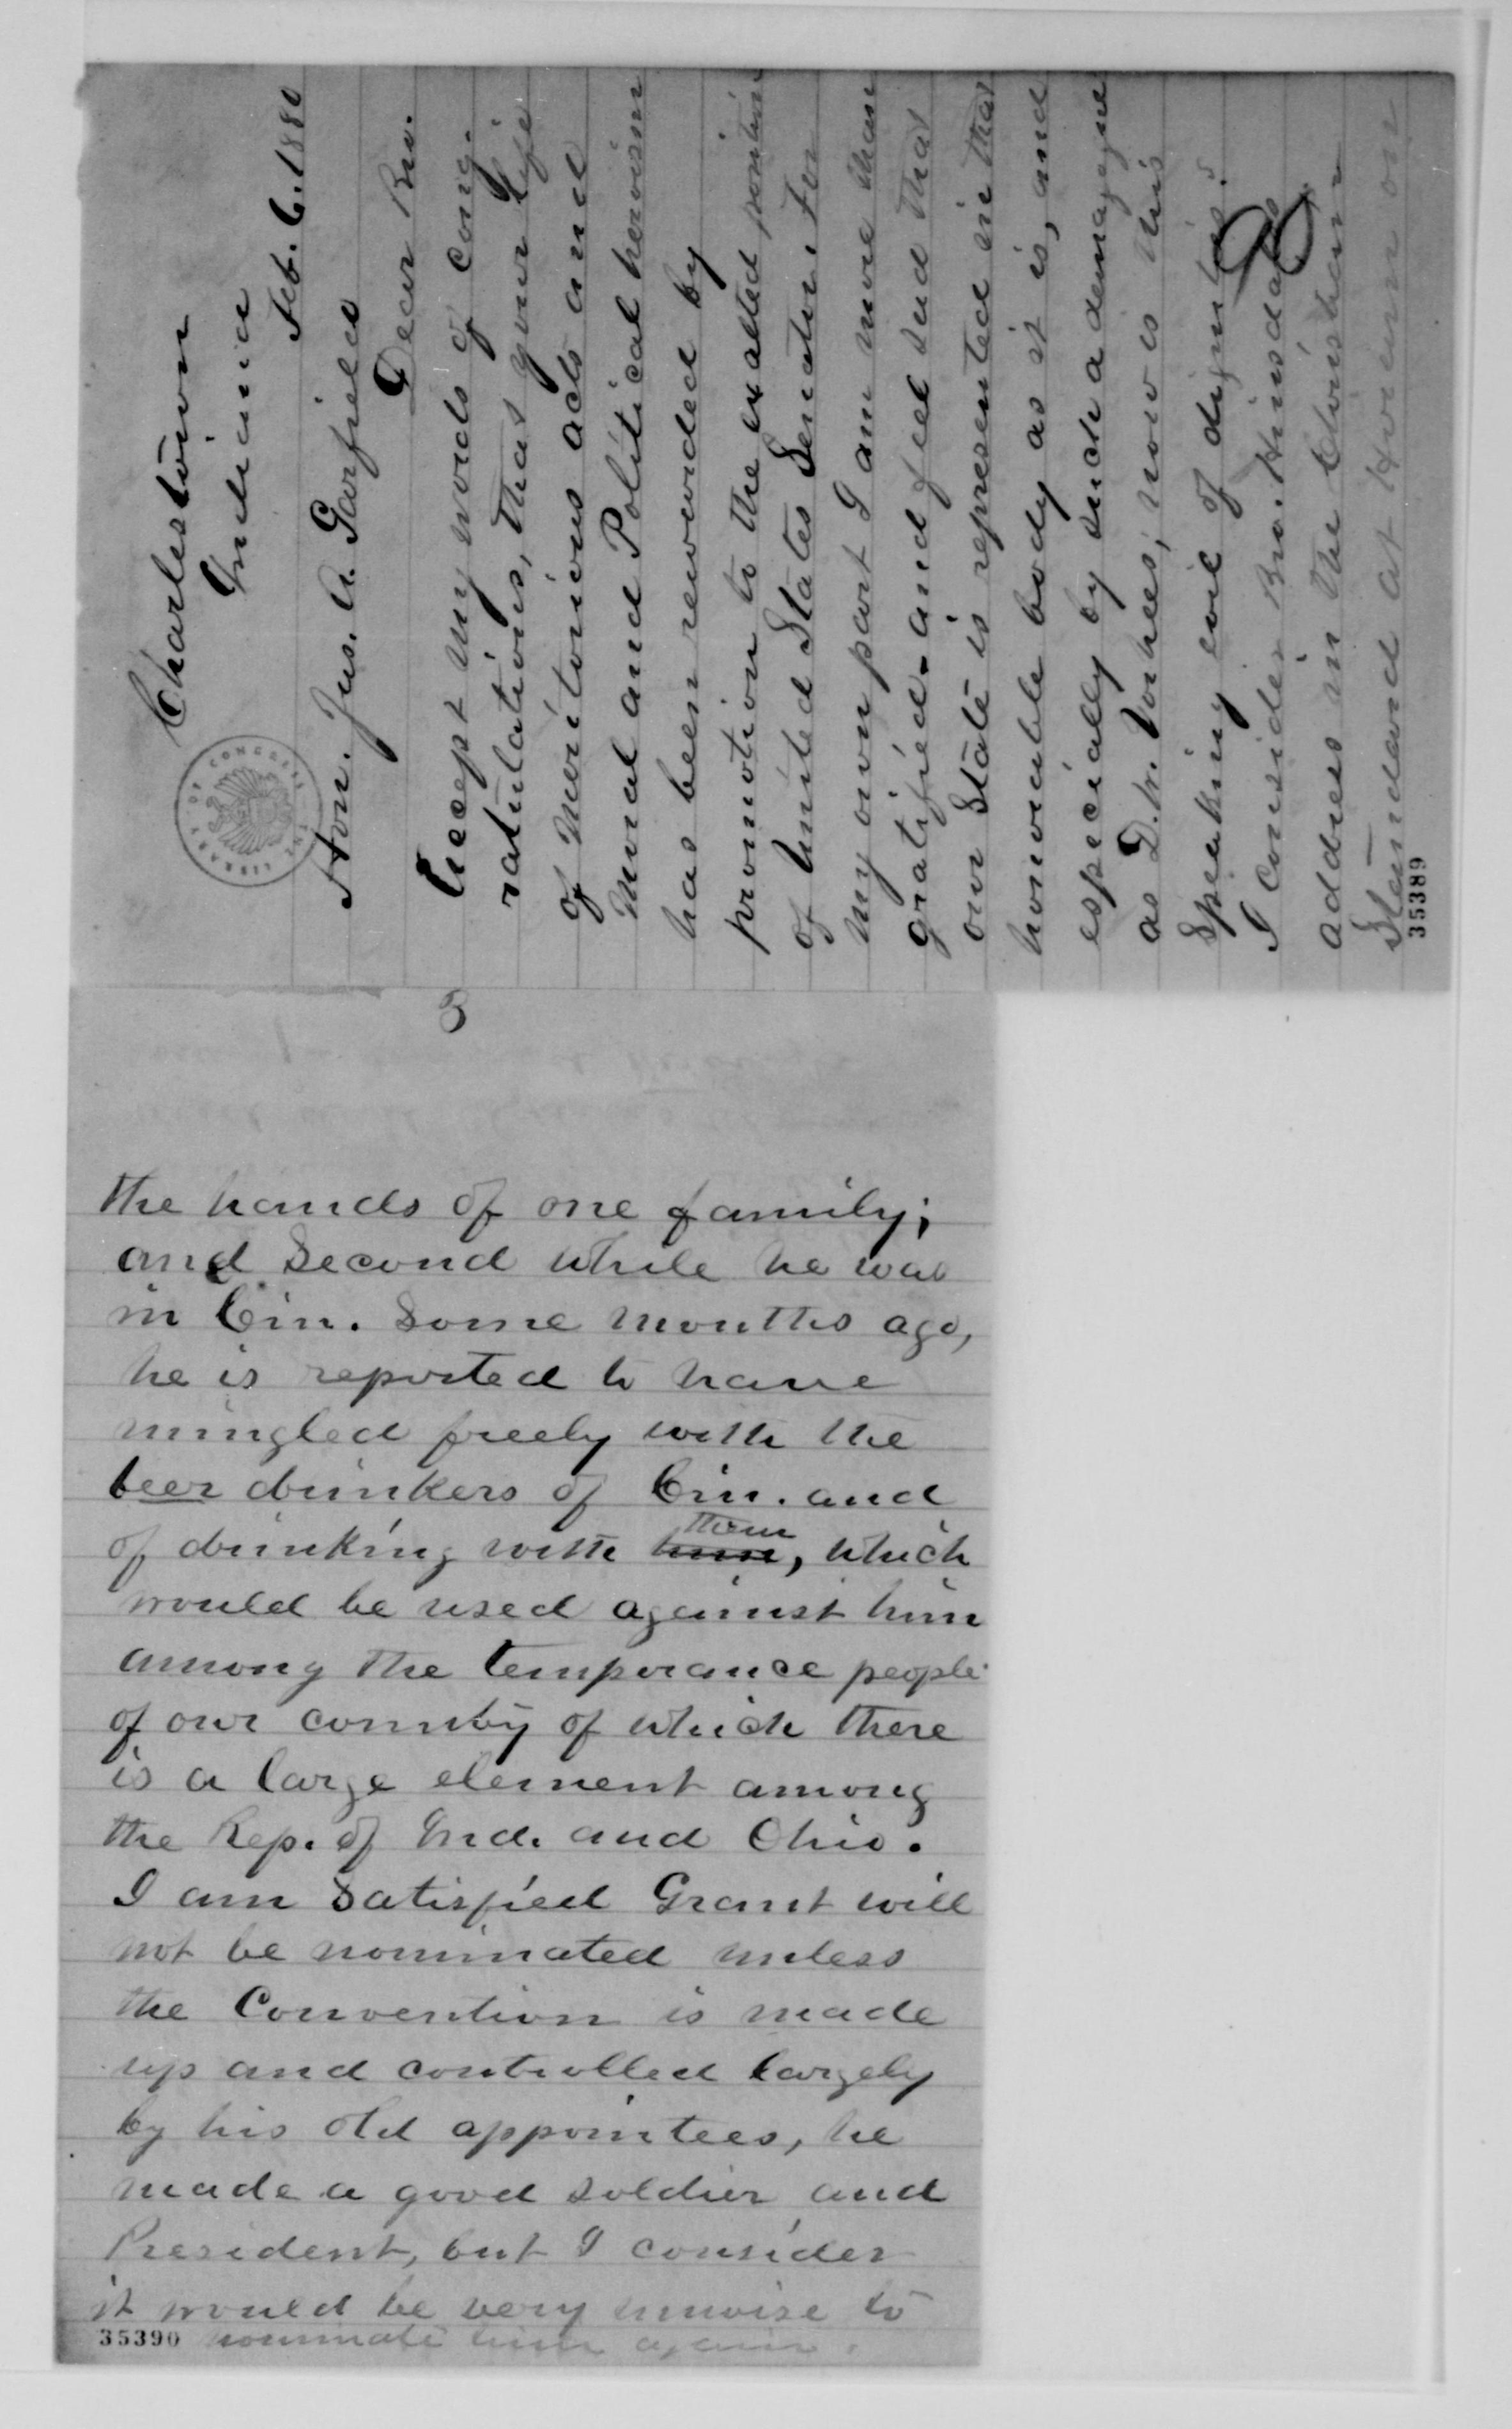 Charlestown
Indiana
Feb. 6. 1880
Hon. Jas. A. Garfield
Dear Bro.
Except my words of cong-
ratulations, that your life
of Meritorious acts and
Moral and Political heroism
has been rewarded by
promotion to the exalted position
of United States Senator. For
my own part I am more than
gratified - and feel sad that
our State is represented in that
honorable body as it is, and
especially by such a demagogue
as D. W. Vorhees; now is this
Speaking evil of dignities?
I Consider Bro. Hinsdales
address in the Christian
Standard at Hiram on
LIBRARY OF CONGRESS
35389
3
the hands of one family;
and Second while he was
in Cin. Some months ago,
he is reported to have
mingled freely with the
beer drinkers of Cin. and
of drinking with him them, which
would be used against him
among the temperance people
of our country of which there
is a large element among
the Rep. of Ind. and Ohio.
I am Satisfied Grant will
not be nominated unless
the Convention is made
up and controlled largely
by his old appointees, he
made a good soldier and
President, but I consider
it would be very unwise to
nominate him again.
35390